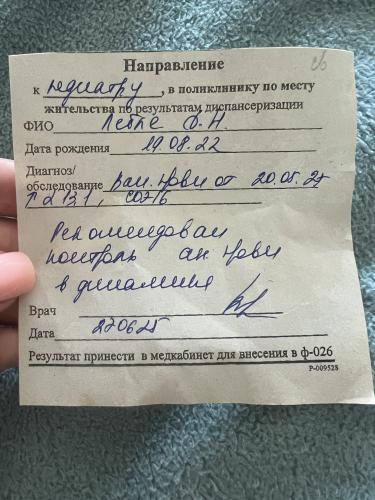 Направление
к педиатру, в поликлинику по месту
жительства по результатам диспансеризации
ФИО
Дата рождения 19.08.22
Диагноз/
обследование ан. крови от 20.05.
СОЭ 16
Рекомендован
контроль ан крови
в динамике
Врач
Дата 270625
Результат принести в медкабинет для внесения в ф-026
Р-009528